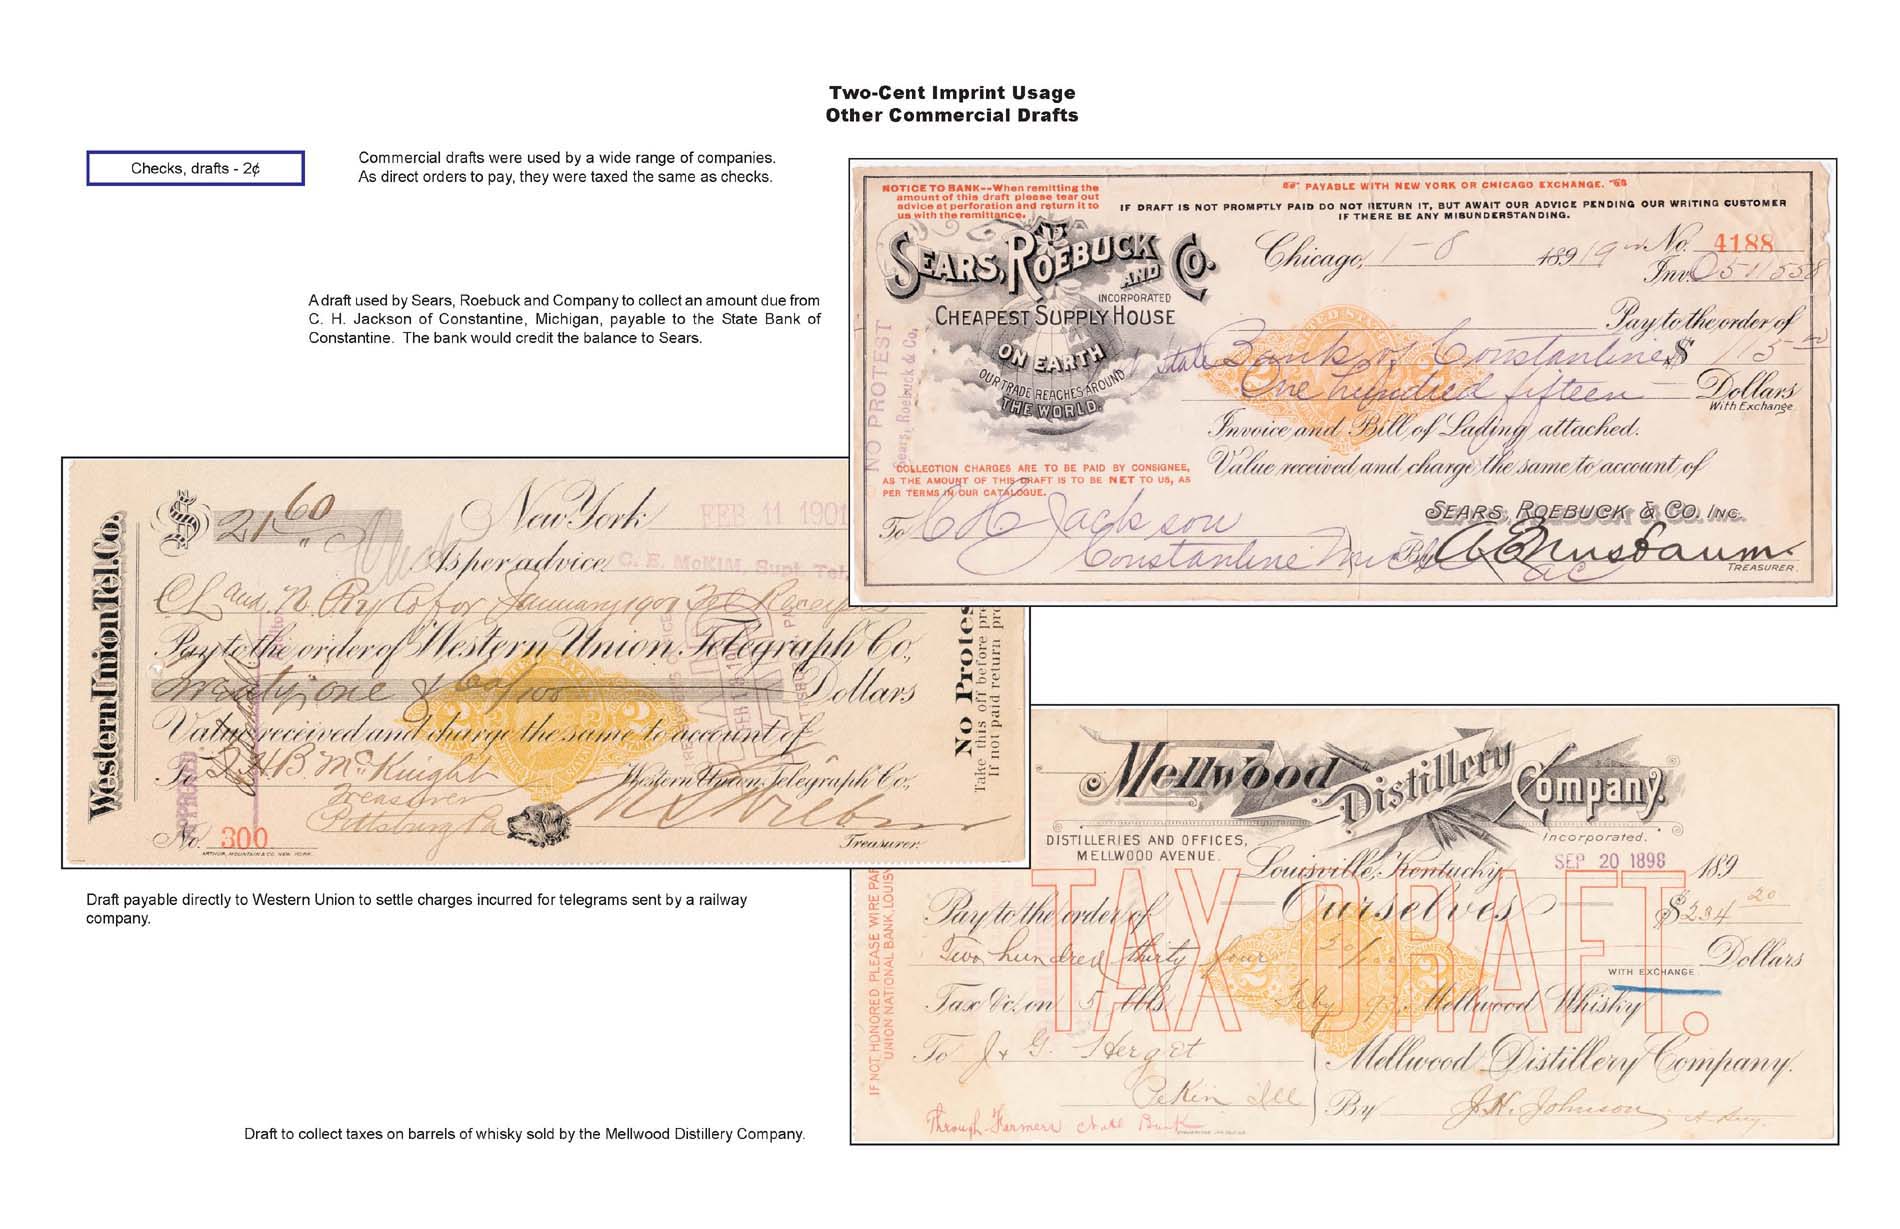 Two-Cent Imprint Usage
Other Commercial Drafts
Checks, drafts - 2¢
Commercial drafts were used by a wide range of companies.
As direct orders to pay, they were taxed the same as checks.
A draft used by Sears, Roebuck and Company to collect an amount due from
C. H. Jackson of Constantine, Michigan, payable to the State Bank of
Constantine. The bank would credit the balance to Sears.
NOTICE TO BANK--When remitting the
amount of this draft please tear out
advice at perforation and return it to
us with the remittance.
PAYABLE WITH NEW YORK OR CHICAGO EXCHANGE.
IF DRAFT IS NOT PROMPTLY PAID DO NOT RETURN IT, BUT AWAIT OUR ADVICE PENDING OUR WRITING CUSTOMER
IF THERE BE ANY MISUNDERSTANDING.
SEARS, ROEBUCK AND CO.
INCORPORATED
CHEAPEST SUPPLY HOUSE
ON EARTH
OUR TRADE REACHES AROUND
THE WORLD.
Chicago, 1-8 189 No. 4188
Inv.
Pay to the order of
State Bank of Constantine $ 115
One hundred fifteen Dollars
With Exchange
Invoice and Bill of Lading attached.
Value received and charge the same to account of
NO PROTEST
Sears, Roebuck & Co.
COLLECTION CHARGES ARE TO BE PAID BY CONSIGNEE,
AS THE AMOUNT OF THIS DRAFT IS TO BE NET TO US, AS
PER TERMS IN OUR CATALOGUE.
SEARS, ROEBUCK & CO. INC.
To C H Jackson
Constantine Mich
By A E Nusbaum
TREASURER.
Western Union Tel. Co.
$ 21 60 New York FEB 11 1901
As per advice C. E. McKIM, Supt. Tel.
Pay to the order of Western Union Telegraph Co.,
Twenty one & 60/100 Dollars
Value received and charge the same to account of
To H B. McKnight Western Union Telegraph Co.,
Treasurer
Pittsburg Pa
No. 300 Treasurer.
ARTHUR, MOUNTAIN & CO. NEW YORK.
No Protes
Take this off before pre
If not paid return pro
Draft payable directly to Western Union to settle charges incurred for telegrams sent by a railway
company.
Mellwood Distillery Company.
Incorporated.
DISTILLERIES AND OFFICES,
MELLWOOD AVENUE.
Louisville, Kentucky, SEP 20 1898 189
TAX DRAFT.
Pay to the order of Ourselves $234 20
Two hundred thirty four Dollars
WITH EXCHANGE
Tax &c. on 5 bbls. Mellwood Whisky
To J & G. Herget Mellwood Distillery Company.
Pekin Ill By J. H. Johnson
Through Farmers State Bank
IF NOT HONORED PLEASE WIRE PAR
UNION NATIONAL BANK, LOUISV
Draft to collect taxes on barrels of whisky sold by the Mellwood Distillery Company.